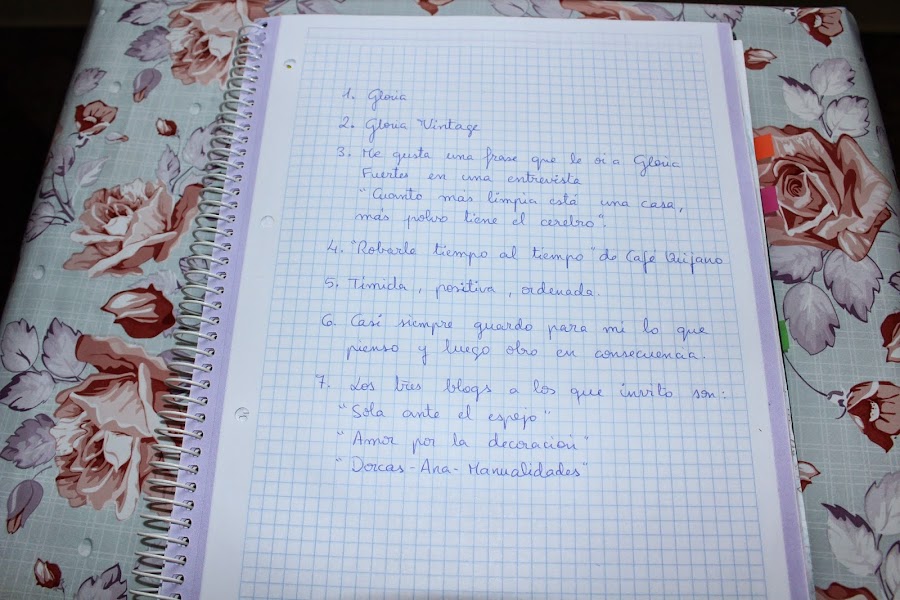 1. Gloria
2. Gloria Vintage
3. Me gusta una frase que le oi a Gloria
Fuertes en una entrevista
"Cuanto más limpia está una casa,
más polvo tiene el cerebro".
4. "Robarle tiempo al tiempo" de Café Quijano
5. Tímida, positiva, ordenada.
6. Casi siempre guardo para mi lo que
pienso y luego obro en consecuencia.
7. Los tres blogs a los que invito son:
"Sola ante el espejo"
"Amor por la decoración"
"Dorcas-Ana-Manualidades"